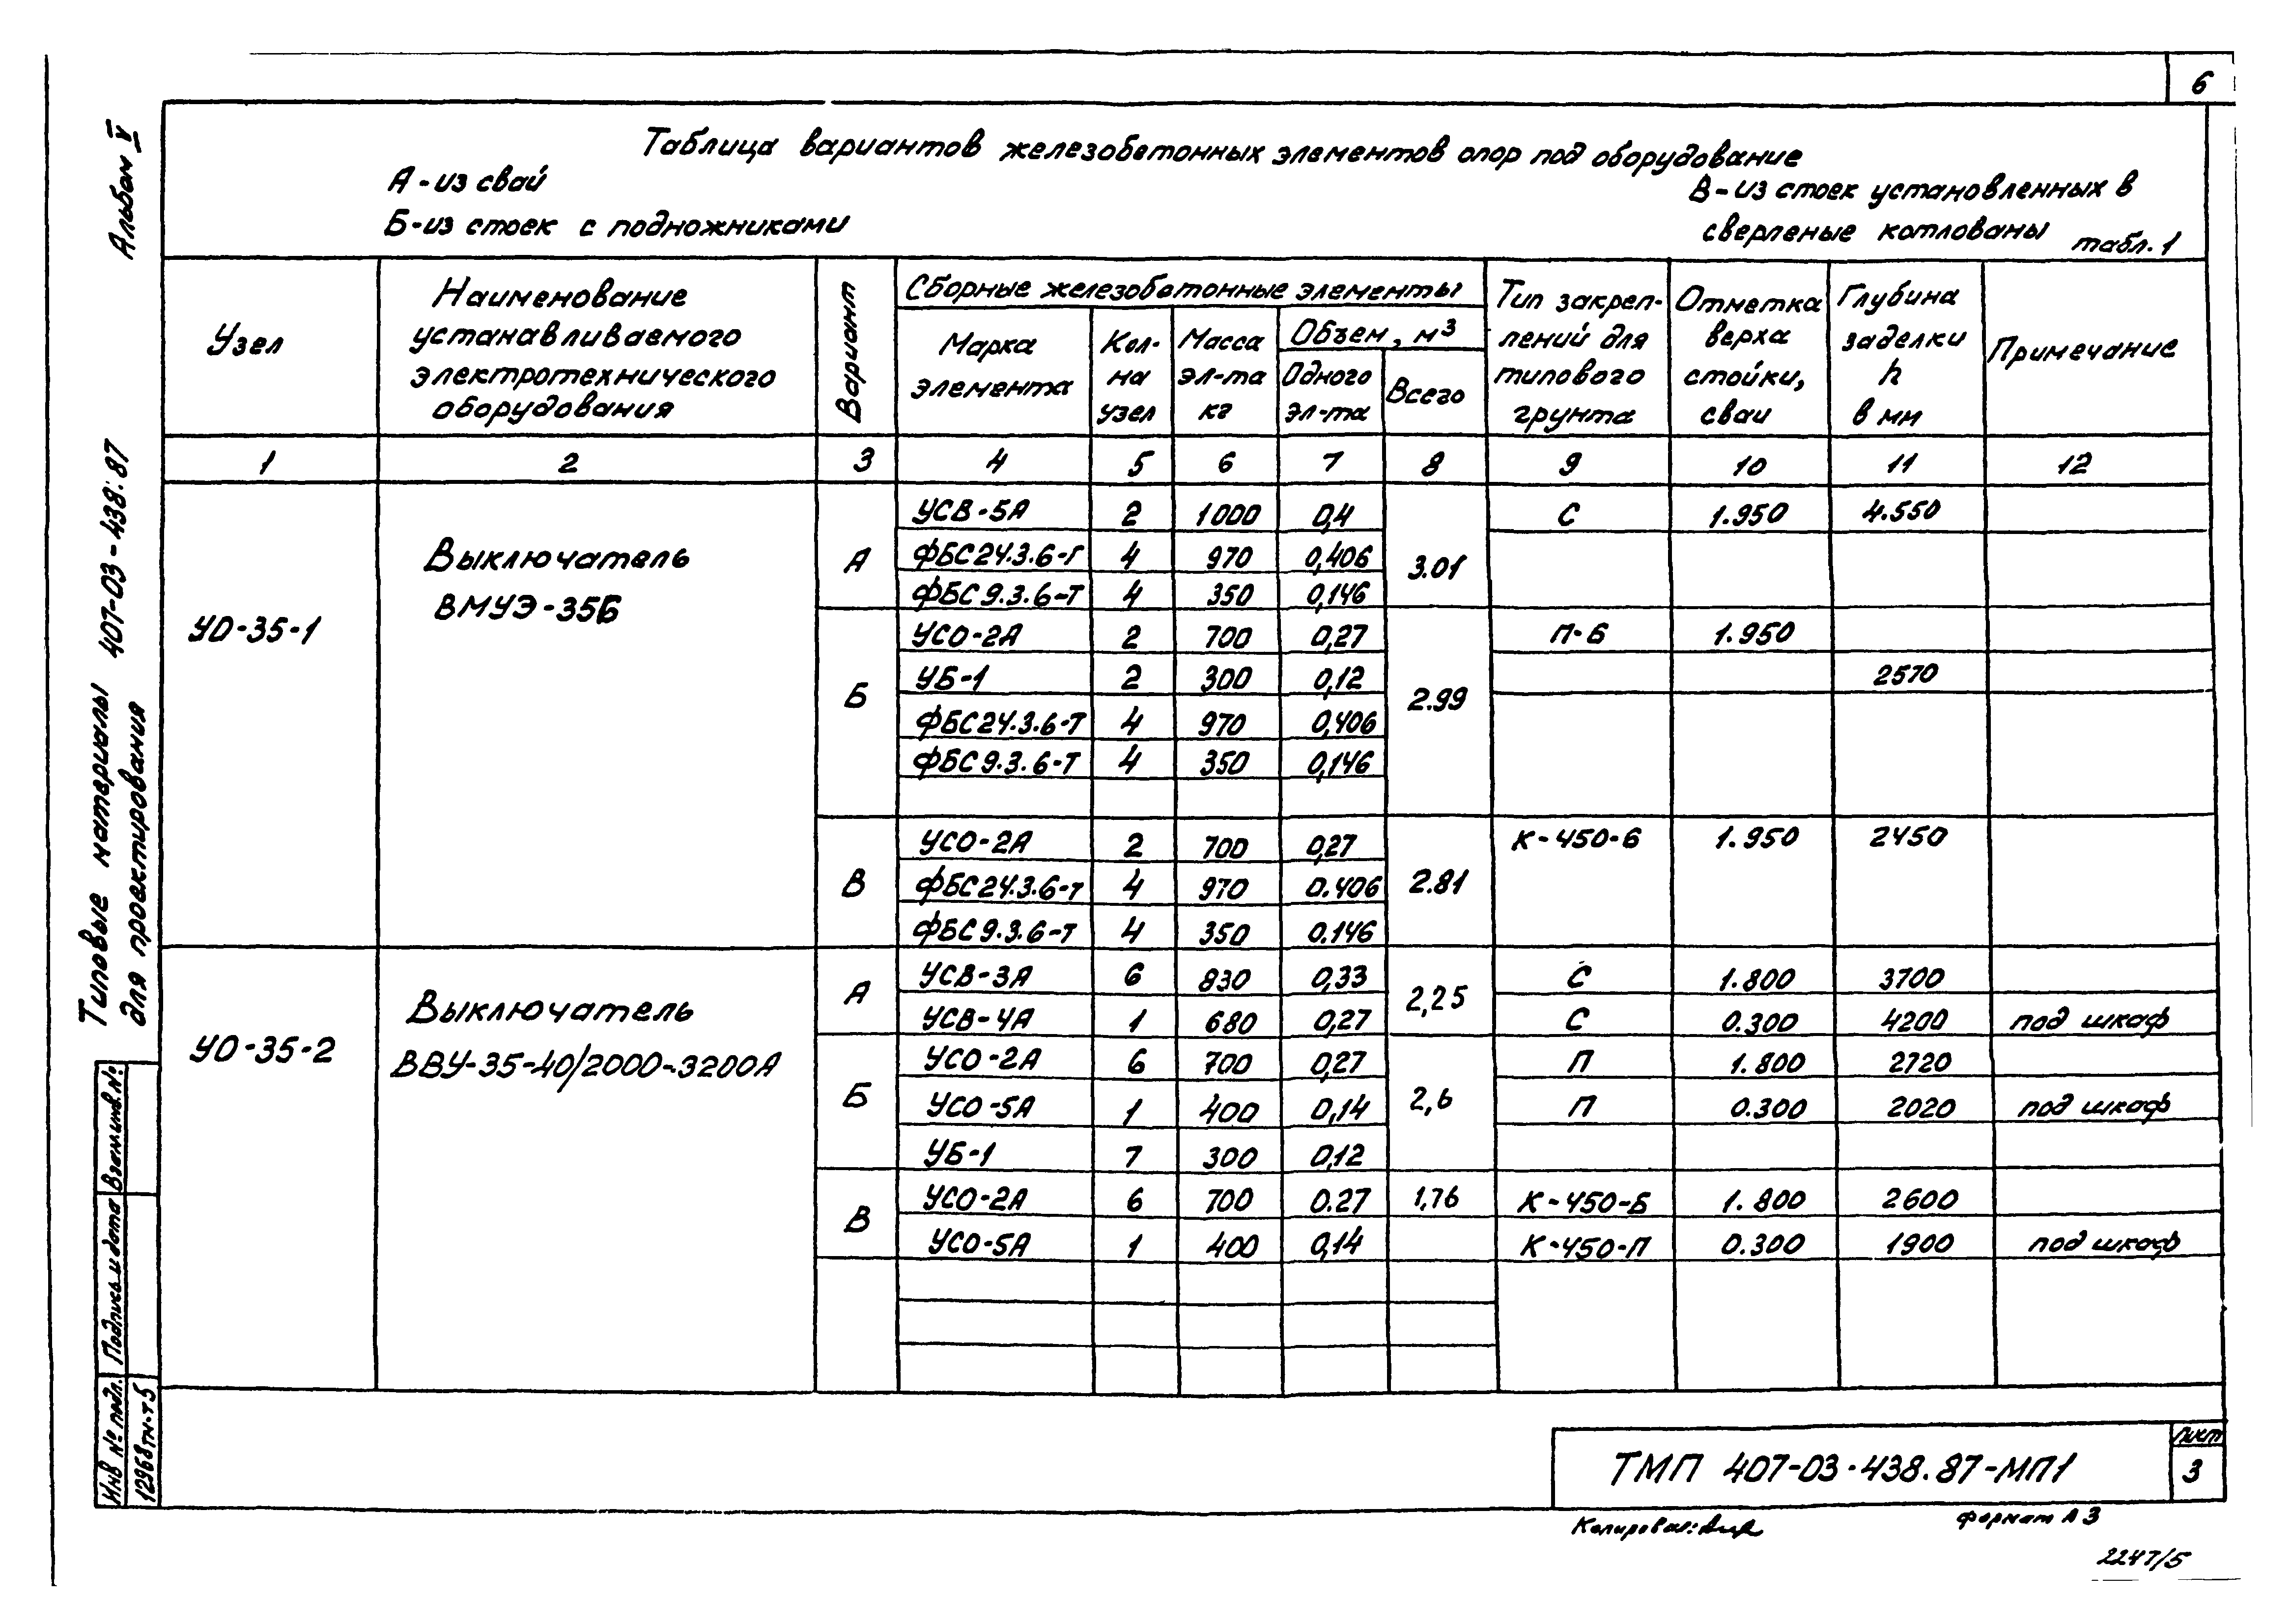 6
Альбом V
Типовые материалы 407-03-438.87
для проектирования
Таблица вариантов железобетонных элементов опор под оборудование
А-из свай
Б-из стоек с подножниками
В-из стоек установленных в
сверленые котлованы
табл.1
Узел
Наименование
устанавливаемого
электротехнического
оборудования
Вариант
Сборные железобетонные элементы
Марка
элемента
Кол-
на
узел
Масса
эл-та
кг
Объем, м3
Одного
эл-та
Всего
Тип закреп-
лений для
типового
грунта
Отметка
верха
стойки,
сваи
Глубина
заделки
h
в мм
Примечание
1 2 3 4 5 6 7 8 9 10 11 12
УО-35-1
Выключатель
ВМУЭ-35Б
А
УСВ-5А 2 1000 0,4 3.01 С 1.950 4.550
ФБС24.3.6-Т 4 970 0,406
ФБС9.3.6-Т 4 350 0,146
Б
УСО-2А 2 700 0,27 2.99 П-Б 1.950
УБ-1 2 300 0,12 2570
ФБС24.3.6-Т 4 970 0,406
ФБС9.3.6-Т 4 350 0,146
В
УСО-2А 2 700 0,27 2.81 К-450-Б 1.950 2450
ФБС24.3.6-т 4 970 0.406
ФБС9.3.6-т 4 350 0.146
УО-35-2
Выключатель
ВВУ-35-40/2000-3200А
А
УСВ-3А 6 830 0,33 2,25 С 1.800 3700
УСВ-4А 1 680 0,27 С 0.300 4200 под шкаф
Б
УСО-2А 6 700 0,27 2,6 П 1.800 2720
УСО-5А 1 400 0,14 П 0.300 2020 под шкаф
УБ-1 7 300 0,12
В
УСО-2А 6 700 0.27 1,76 К-450-Б 1.800 2600
УСО-5А 1 400 0,14 К-450-П 0.300 1900 под шкаф
Взам.инв.№
Подпись и дата
Инв № подл.
12968тм-т.5
ТМП 407-03-438.87-МП1
Лист
3
Копировал:
формат А3
2247/5